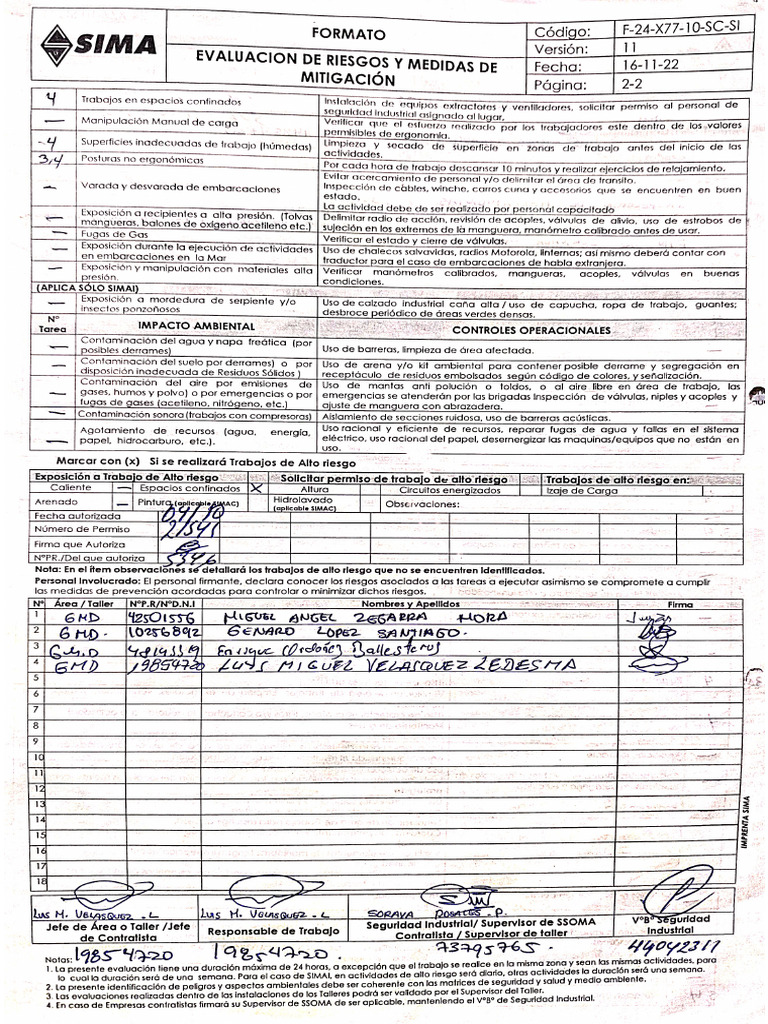 SIMA
FORMATO
EVALUACION DE RIESGOS Y MEDIDAS DE MITIGACIÓN
Código: F-24-X77-10-SC-SI
Versión: 11
Fecha: 16-11-22
Página: 2-2
4 Trabajos en espacios confinados Instalación de equipos extractores y ventiladores, solicitar permiso al personal de seguridad industrial asignado al lugar.
— Manipulación Manual de carga Verificar que el esfuerzo realizado por los trabajadores este dentro de los valores permisibles de ergonomía.
4 Superficies inadecuadas de trabajo (húmedas) Limpieza y secado de superficie en zonas de trabajo antes del inicio de las actividades.
3,4 Posturas no ergonómicas Por cada hora de trabajo descansar 10 minutos y realizar ejercicios de relajamiento.
— Varada y desvarada de embarcaciones Evitar acercamiento de personal y/o delimitar el área de transito.
Inspección de cables, winche, carros cuna y accesorios que se encuentren en buen estado.
La actividad debe de ser realizado por personal capacitado
— Exposición a recipientes a alta presión. (Tolvas mangueras, balones de oxigeno acetileno etc.) Delimitar radio de acción, revisión de acoples, válvulas de alivio, uso de estrobos de sujeción en los extremos de la manguera, manómetro calibrado antes de usar.
— Fugas de Gas Verificar el estado y cierre de válvulas.
— Exposición durante la ejecución de actividades en embarcaciones en la Mar Uso de chalecos salvavidas, radios Motorola, linternas; así mismo deberá contar con traductor para el caso de embarcaciones de habla extranjera.
— Exposición y manipulación con materiales alta presión. Verificar manómetros calibrados, mangueras, acoples, válvulas en buenas condiciones.
(APLICA SÓLO SIMAI)
— Exposición a mordedura de serpiente y/o insectos ponzoñosos Uso de calzado industrial caña alta / uso de capucha, ropa de trabajo, guantes; desbroce periódico de áreas verdes densas.
N° Tarea IMPACTO AMBIENTAL CONTROLES OPERACIONALES
— Contaminación del agua y napa freática (por posibles derrames) Uso de barreras, limpieza de área afectada.
— Contaminación del suelo por derrames) o por disposición inadecuada de Residuos Sólidos ) Uso de arena y/o kit ambiental para contener posible derrame y segregación en receptáculo de residuos embolsados según código de colores, y señalización.
— Contaminación del aire por emisiones de gases, humos y polvo) o por emergencias o por fugas de gases (acetileno, nitrógeno, etc.) Uso de mantas anti polución o toldos, o al aire libre en área de trabajo, las emergencias se atenderán por las brigadas Inspección de válvulas, niples y acoples y ajuste de manguera con abrazadera.
— Contaminación sonora (trabajos con compresoras) Aislamiento de secciones ruidosa, uso de barreras acústicas.
— Agotamiento de recursos (agua, energía, papel, hidrocarburo, etc.). Uso racional y eficiente de recursos, reparar fugas de agua y fallas en el sistema eléctrico, uso racional del papel, desernergizar las maquinas/equipos que no están en uso.
Marcar con (x) Si se realizará Trabajos de Alto riesgo
Exposición a Trabajo de Alto riesgo Solicitar permiso de trabajo de alto riesgo Trabajos de alto riesgo en:
Caliente — Espacios confinados X Altura Circuitos energizados Izaje de Carga
Arenado — Pintura (aplicable SIMAC) Hidrolavado (aplicable SIMAC) Observaciones:
Fecha autorizada 04/10
Número de Permiso 21541
Firma que Autoriza
N°PR./Del que autoriza 5346
Nota: En el item observaciones se detallará los trabajos de alto riesgo que no se encuentren identificados.
Personal Involucrado: El personal firmante, declara conocer los riesgos asociados a las tareas a ejecutar asimismo se compromete a cumplir las medidas de prevención acordadas para controlar o minimizar dichos riesgos.
N° Área / Taller N°P.R/N°D.N.I Nombres y Apellidos Firma
1 GMD 42501556 MIGUEL ANGEL ZEGARRA MORA
2 GMD. 10256892 GENARO LOPEZ SANTIAGO.
3 G.M.D Enrique Ordoñez Ballesteros
4 GMD 19854720 LUIS MIGUEL VELASQUEZ LEDESMA
5
6
7
8
9
10
11
12
13
14
15
16
17
18
IMPRENTA SIMA
LUIS M. VELASQUEZ. L LUIS M. VELASQUEZ. L SORAYA ROSALES. P.
Jefe de Área o Taller /Jefe de Contratista Responsable de Trabajo Seguridad Industrial/ Supervisor de SSOMA Contratista / Supervisor de taller V°B° Seguridad Industrial
19854720 19854720. 73795765. 44042311
Notas:
1. La presente evaluación tiene una duración máxima de 24 horas, a excepción que el trabajo se realice en la misma zona y sean las mismas actividades, para lo cual la duración será de una semana. Para el caso de SIMAI, en actividades de alto riesgo será diario, otras actividades la duración será una semana.
2. La presente identificación de peligros y aspectos ambientales debe ser coherente con las matrices de seguridad y salud y medio ambiente.
3. Las evaluaciones realizadas dentro de las instalaciones de los Talleres podrá ser validado por el Supervisor del Taller.
4. En caso de Empresas contratistas firmará su Supervisor de SSOMA de ser aplicable, manteniendo el V°B° de Seguridad Industrial.